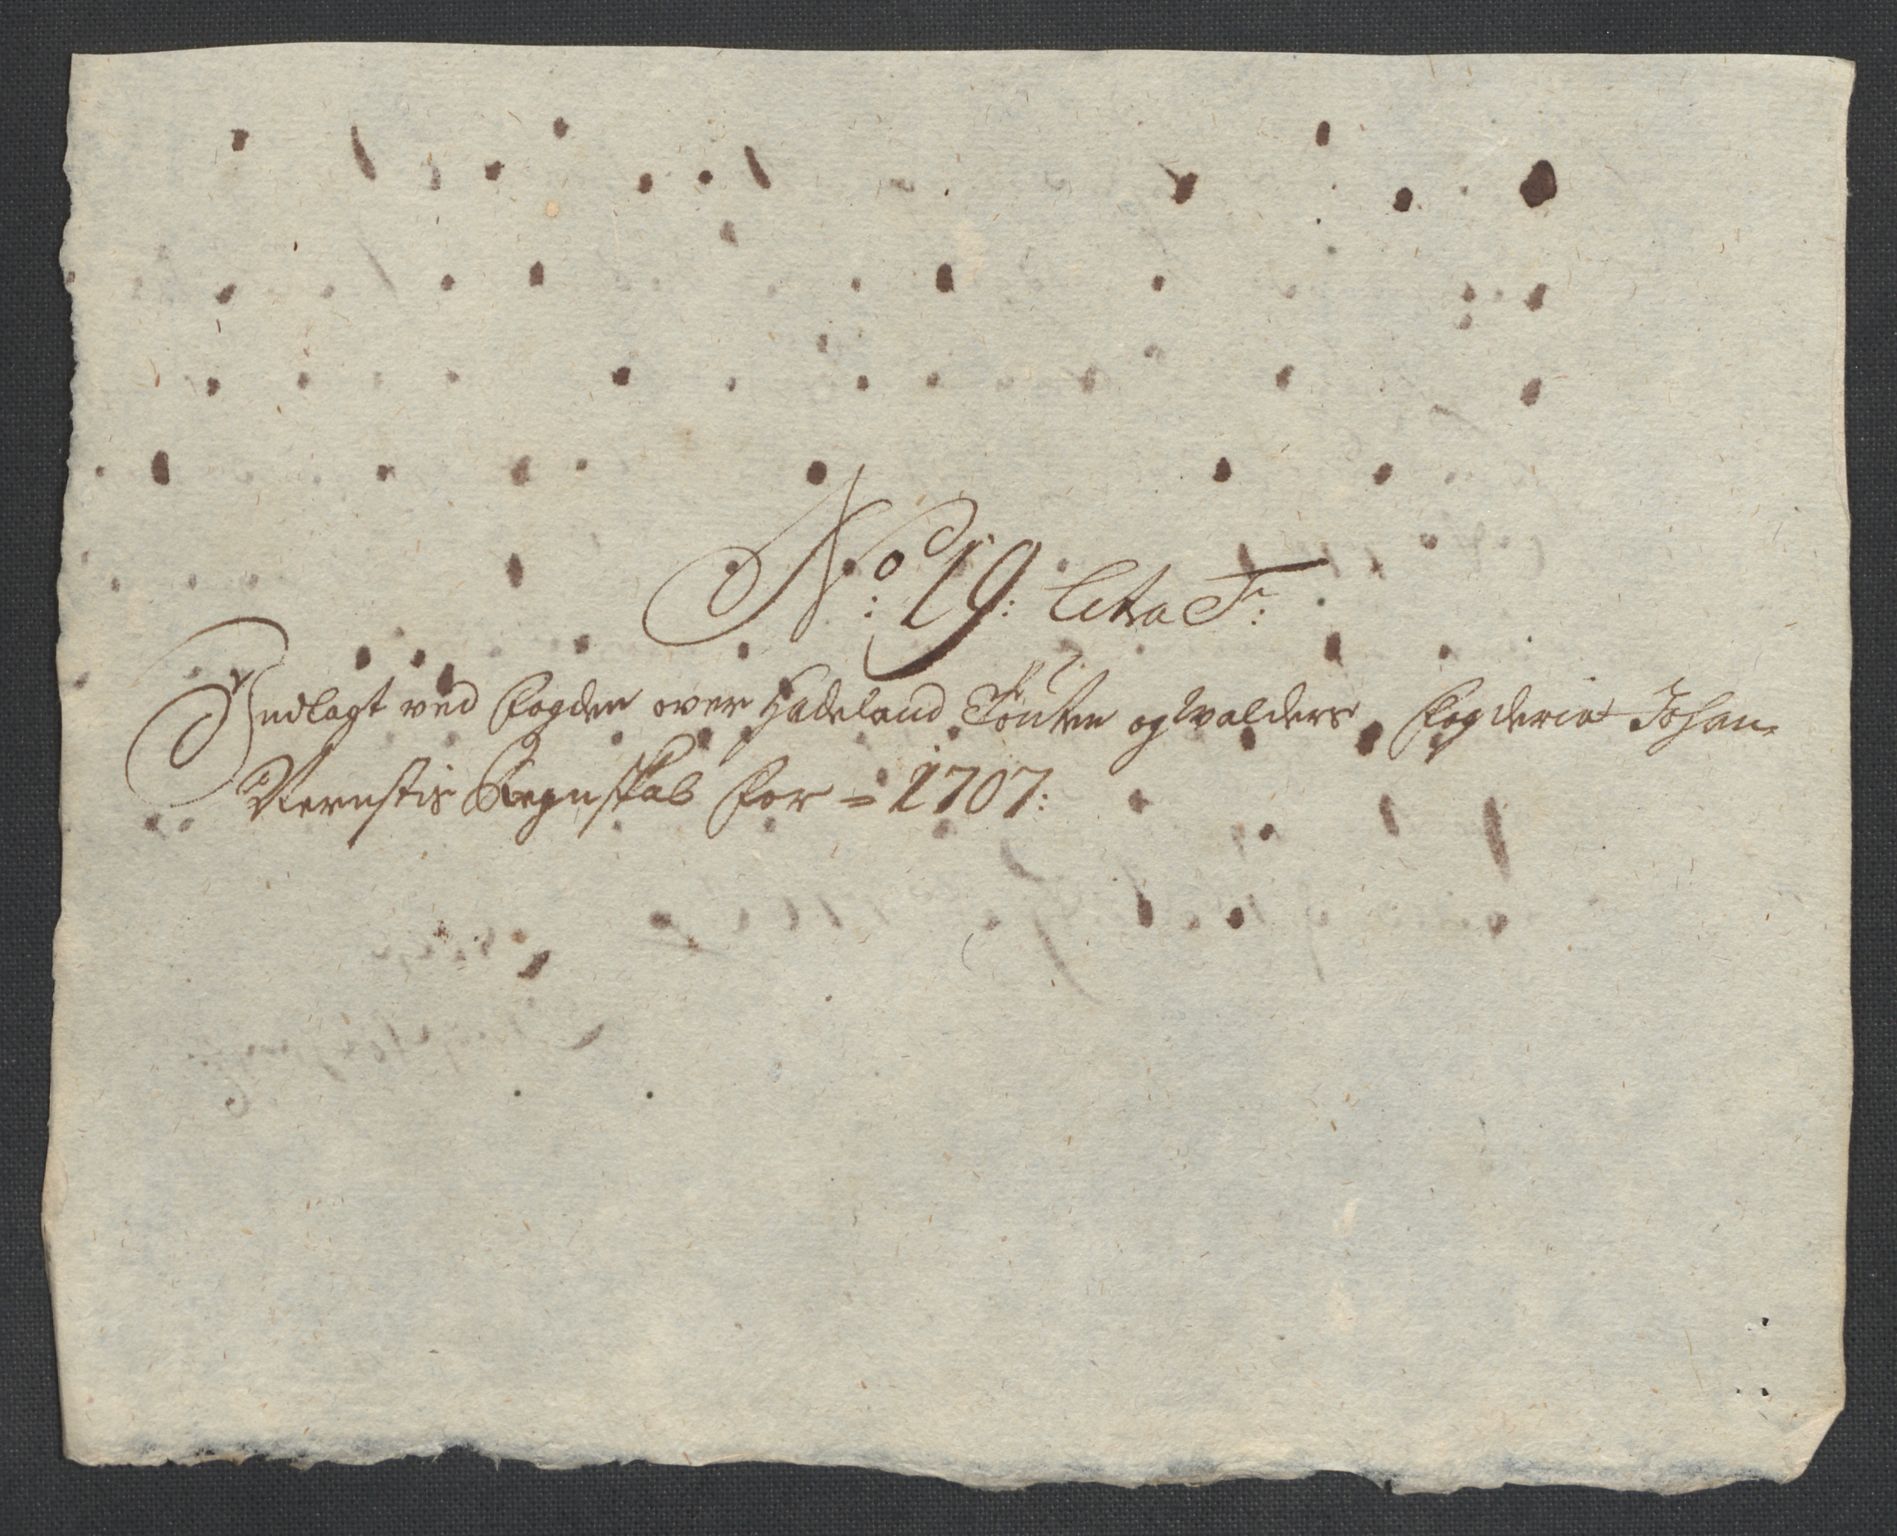 No: 19: Litra F:
Indlagt ved Fogden over Hadeland Toten og Walders Fogderie Johan
Vernstis Regnskab for = 1707: